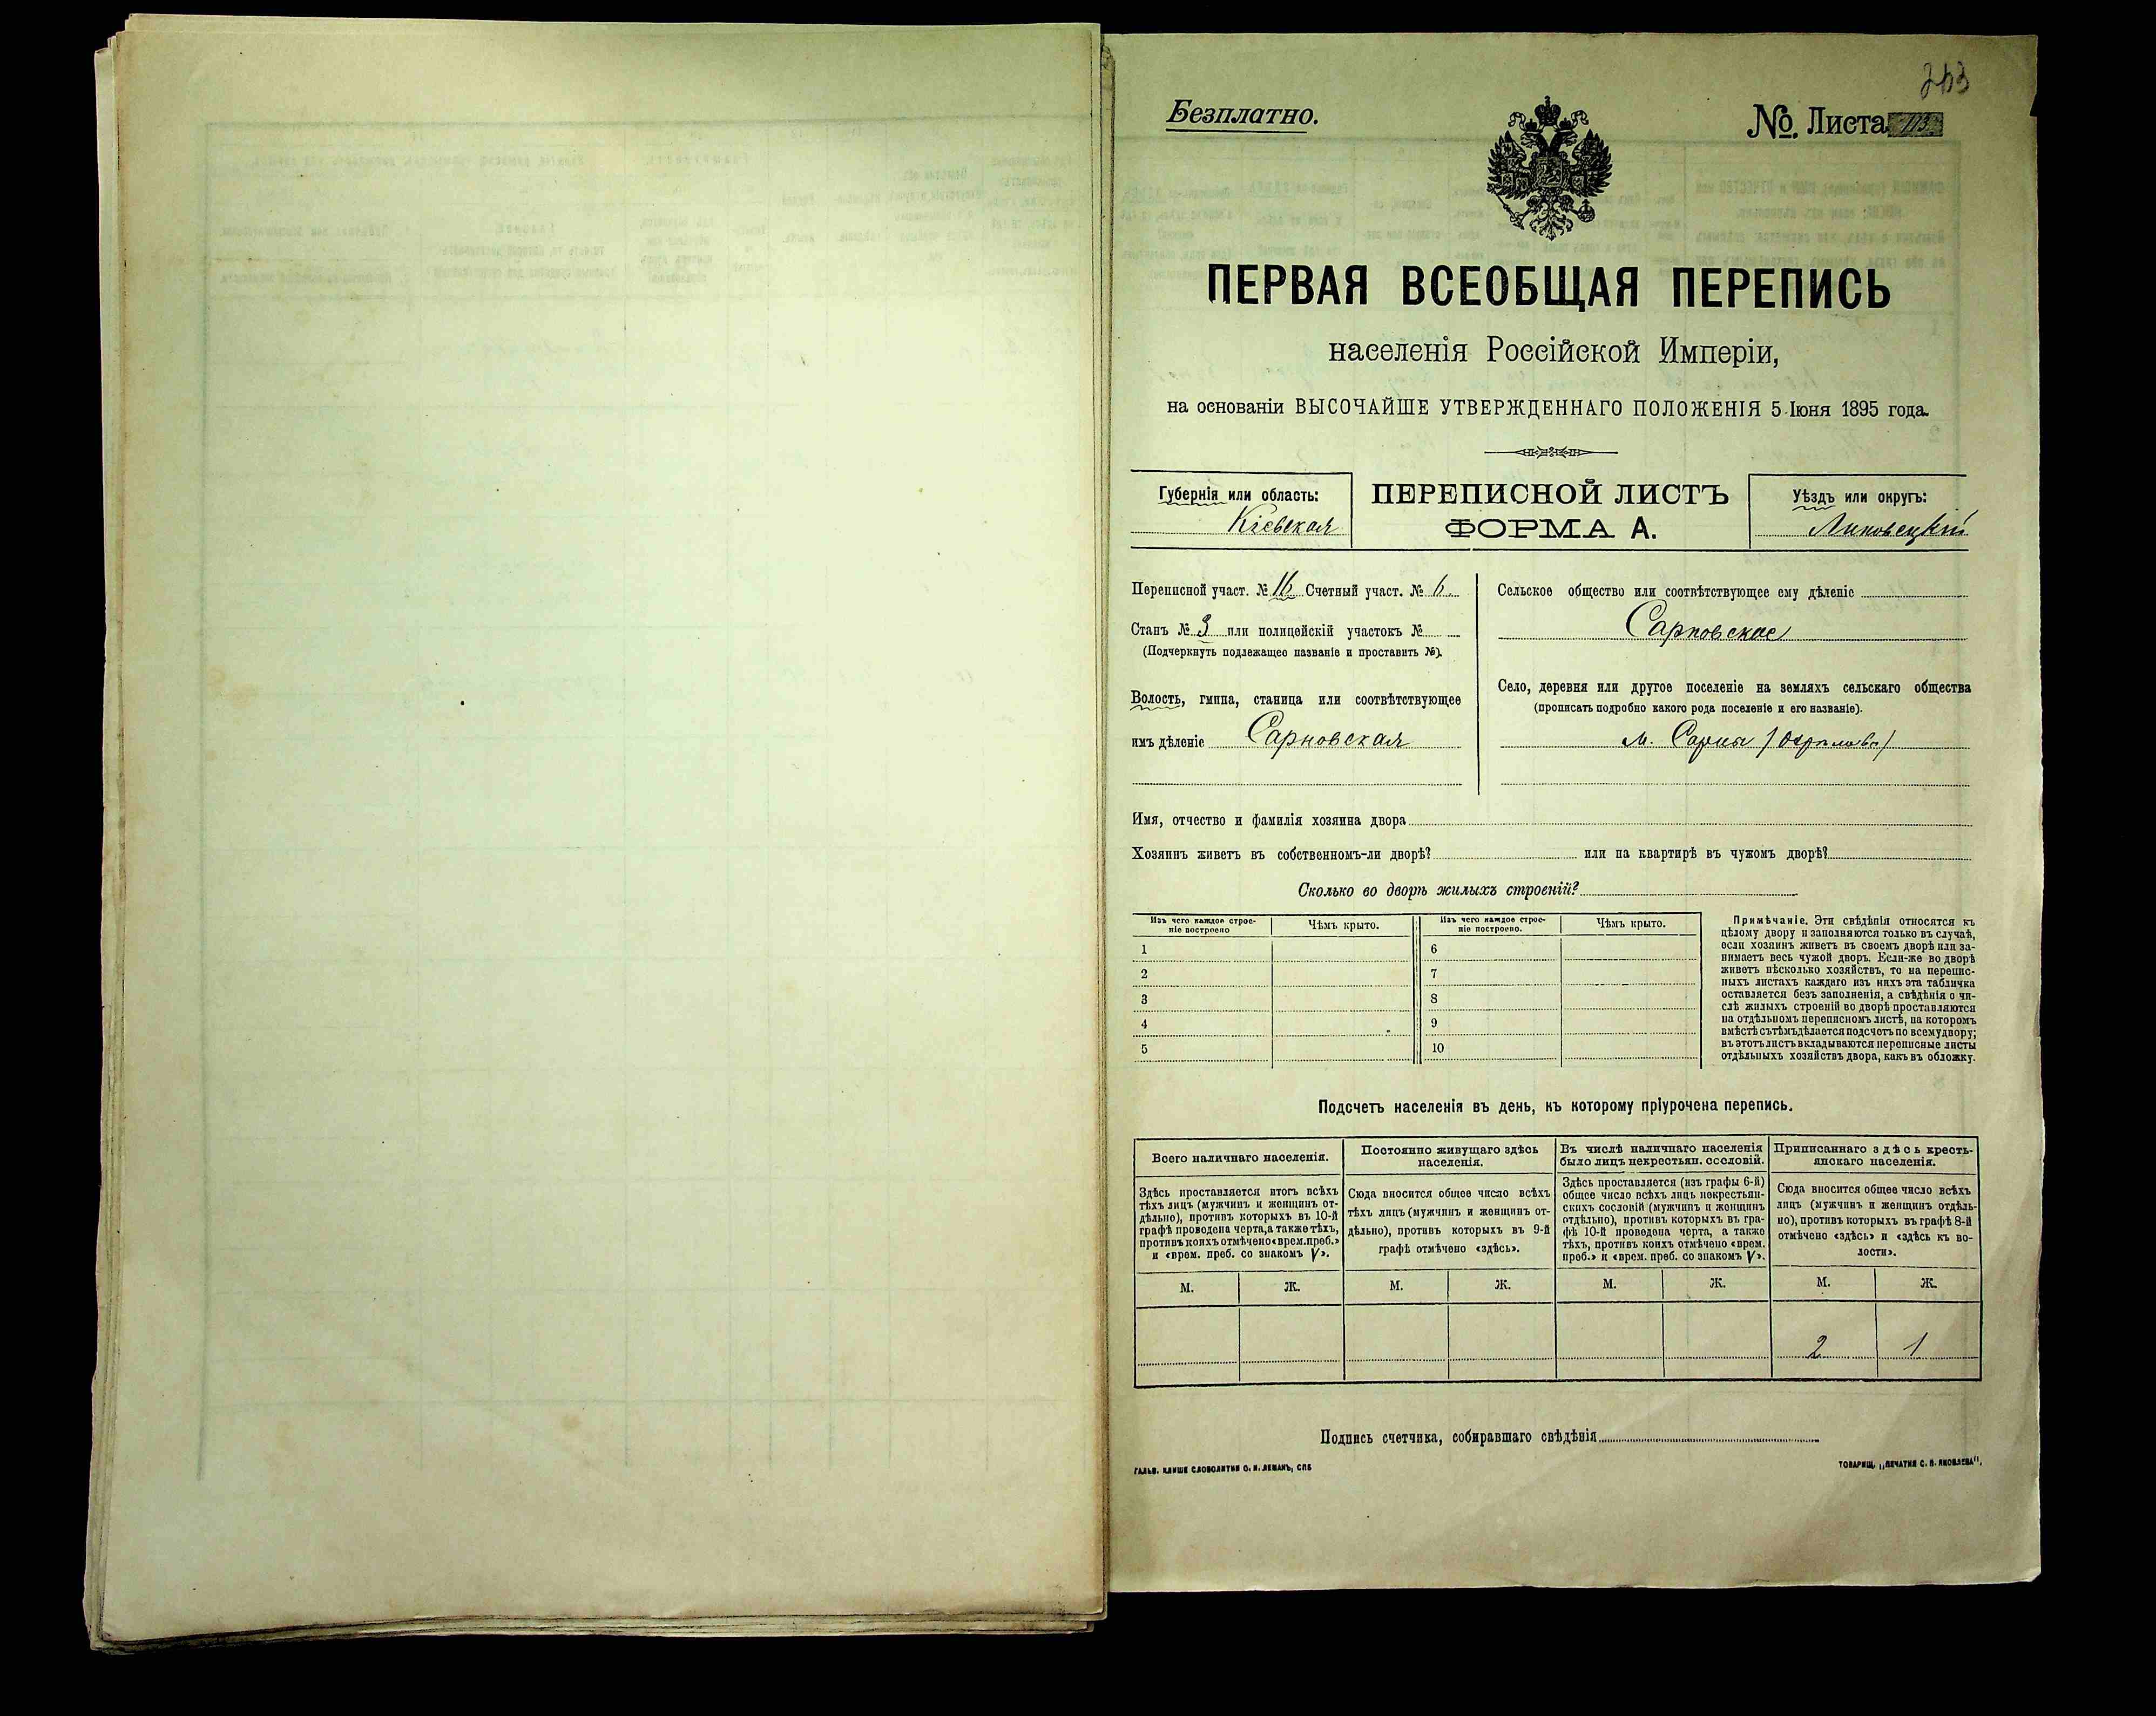 Безплатно.
№. Листа 113
ПЕРВАЯ ВСЕОБЩАЯ ПЕРЕПИСЬ
населенія Россійской Имперіи,
на основаніи ВЫСОЧАЙШЕ УТВЕРЖДЕННАГО ПОЛОЖЕНІЯ 5 Іюня 1895 года.
Губернія или область:
Кіевская
ПЕРЕПИСНОЙ ЛИСТЪ
ФОРМА А.
Уѣздъ или округъ:
Липовецкій
Переписной участ. № 16 Счетный участ. № 6
Станъ № 3 или полицейскій участокъ №
(Подчеркнуть подлежащее названіе и проставить №).
Волость, гмина, станица или соотвѣтствующее
имъ дѣленіе Сарновская
Сельское общество или соотвѣтствующее ему дѣленіе
Сарновское
Село, деревня или другое поселеніе на земляхъ сельскаго общества
(прописать подробно какого рода поселеніе и его названіе).
м. Сарны
Имя, отчество и фамилія хозяина двора
Хозяинъ живетъ въ собственномъ-ли дворѣ? или на квартирѣ въ чужомъ дворѣ?
Сколько во дворѣ жилыхъ строеній?
Изъ чего каждое строе-
ніе построено
Чѣмъ крыто.
Изъ чего каждое строе-
ніе построено.
Чѣмъ крыто.
1
2
3
4
5
6
7
8
9
10
Примѣчаніе. Эти свѣдѣнія относятся къ
цѣлому двору и заполняются только въ случаѣ,
если хозяинъ живетъ въ своемъ дворѣ или за-
нимаетъ весь чужой дворъ. Если-же во дворѣ
живетъ нѣсколько хозяйствъ, то на перепис-
ныхъ листахъ каждаго изъ нихъ эта табличка
оставляется безъ заполненія, а свѣдѣнія о чи-
слѣ жилыхъ строеній во дворѣ проставляются
на отдѣльномъ переписномъ листѣ, на которомъ
вмѣстѣ съ тѣмъ дѣлается подсчетъ по всему двору;
въ этотъ листъ вкладываются переписные листы
отдѣльныхъ хозяйствъ двора, какъ въ обложку.
Подсчетъ населенія въ день, къ которому пріурочена перепись.
Всего наличнаго населенія.
Здѣсь проставляется итогъ всѣхъ
тѣхъ лицъ (мужчинъ и женщинъ от-
дѣльно), противъ которыхъ въ 10-й
графѣ проведена черта, а также тѣхъ,
противъ коихъ отмѣчено «врем. преб.»
и «врем. преб. со знакомъ V».
Постоянно живущаго здѣсь
населенія.
Сюда вносится общее число всѣхъ
тѣхъ лицъ (мужчинъ и женщинъ от-
дѣльно), противъ которыхъ въ 9-й
графѣ отмѣчено «здѣсь».
Въ числѣ наличнаго населенія
было лицъ некрестьян. сословій.
Здѣсь проставляется (изъ графы 6-й)
общее число всѣхъ лицъ некрестьян-
скихъ сословій (мужчинъ и женщинъ
отдѣльно), противъ которыхъ въ гра-
фѣ 10-й проведена черта, а также
тѣхъ, противъ коихъ отмѣчено «врем.
преб.» и «врем. преб. со знакомъ V».
Приписаннаго здѣсь кресть-
янскаго населенія.
Сюда вносится общее число всѣхъ
лицъ (мужчинъ и женщинъ отдѣль-
но), противъ которыхъ въ графѣ 8-й
отмѣчено «здѣсь» и «здѣсь къ во-
лости».
М. Ж. М. Ж. М. Ж. М. Ж.
2 1
Подпись счетчика, собиравшаго свѣдѣнія
ГАЛЬВ. КЛИШЕ СЛОВОЛИТНИ О. И. ЛЕМАНЪ, СПБ
ТОВАРИЩ. „ПЕЧАТНЯ С. П. ЯКОВЛЕВА".